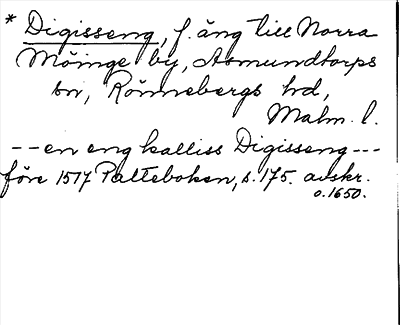 * Digisseng, f. äng till Norra
Möinge by, Asmundtorps
sn, Rönnebergs hd,
Malm. l.
-- en eng kalliss Digisseng ---
före 1517 Palteboken, s. 175. avskr.
o. 1650.